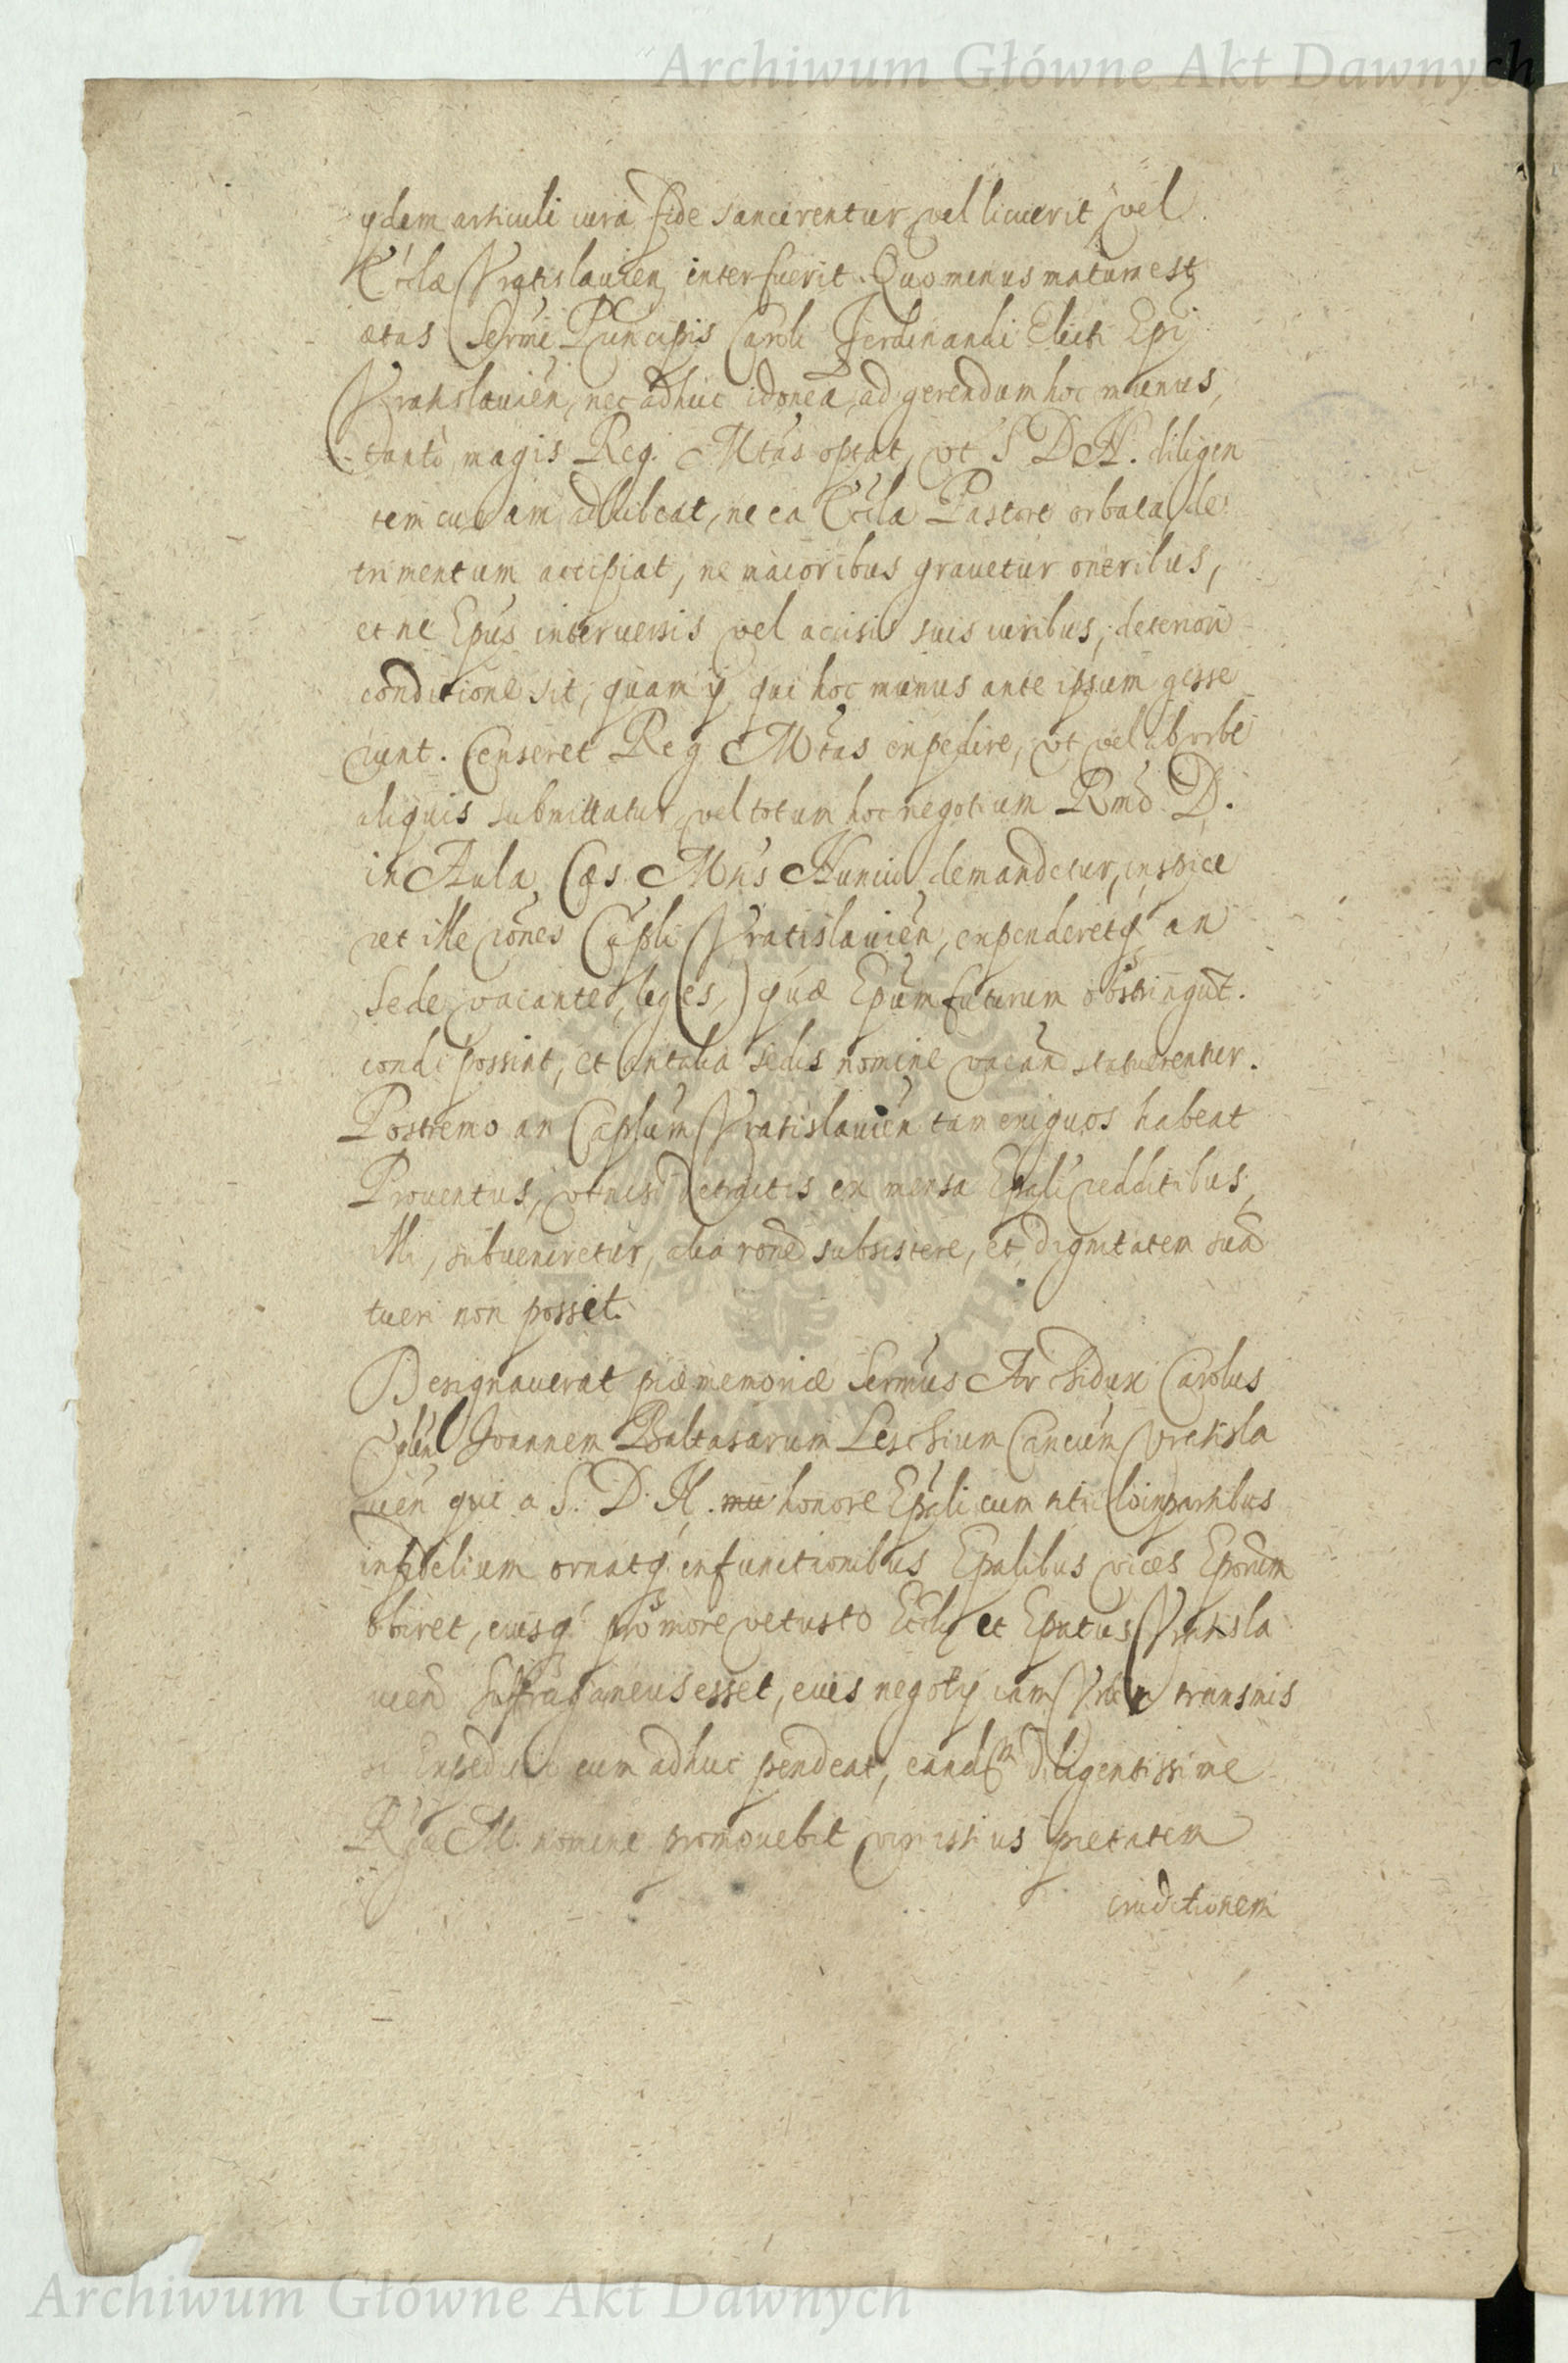 Archiwum Główne Akt Dawnych
ydem articuli iura fide sancirentur, vel licuerit vel
Ecclæ Vratislauien, interfuerit. Quo minus matura est
ætas Sermi Principis Caroli Ferdinandi Electi Epi
Vratislauien, nec adhuc idonea, ad gerendum hoc munus,
tanto magis Reg. Mtas optat, vt S D N. diligen
tem curam adhibeat, ne ea Eccla Pastore orbata de
trimentum accipiat, ne maioribus grauetur oneribus,
et ne Epus interuersis vel accisis suis iuribus, deteriori
conditione sit, quam ij qui hoc munus ante ipsum gesse
runt. Censeret Reg. Mtas expedire, vt vel ab vrbe
aliquis submittatur, vel totum hoc negotium Rmo D.
in Aula Cæs. Mtis Nuncio demandetur, inspice
ret ille rones Capli Vratislauien, expenderetq an
Sede vacante, leges, quæ Epum futurum obstringut.
condi possint, et an talia sedis nomine vacan statuerentur.
Postremo an Caplum Vratislauien tam exiguos habeat
Prouentus, vt nisi detractis ex mensa Epali redditibus,
illi, subueniretur, alia rone subsistere, et dignitatem sua
tueri non posset.
Designauerat piæ memoriæ Sermus Archidux Carolus
Joannem Baltasarum Leschium Cancum Vratisla
uien qui a S. D. N. honore Epali cum titulo in partibus
infidelium ornatq. in functionibus Epalibus vices Eporum
obiret, eiusq. pro more vetusto Ecclæ et Epatus Vratisla
uien Suffraganeus esset, euis negotij iam Vrbem transmis
si Expeditio cum adhuc pendeat, eandem diligentissime
Rgæ M. nomine promouebit viri istius pietatem
eruditionem
Archiwum Główne Akt Dawnych